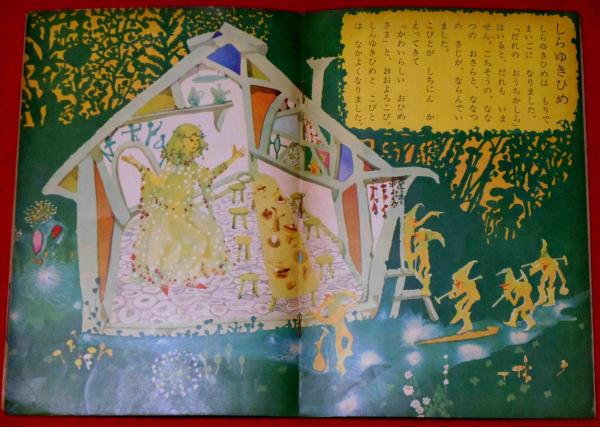 しらゆきひめ
しらゆきひめは もりで
まいごに なりました。
「だれの おうちかしら」
はいると、だれも いま
せん。ごちそうの、なな
つの おさらと、ななつ
の さじが、ならんでい
ました。
こびとが しちにん か
えってきて
「かわいらしい おひめ
さま」と、おおよろこび。
しらゆきひめと こびと
は なかよくなりました。